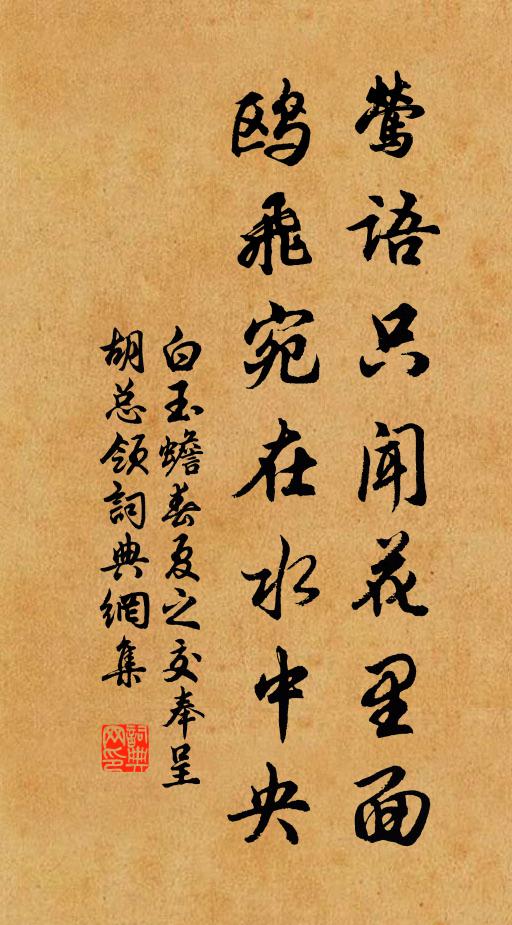 莺语只闻花里面
鸥飛宛在水中央
白玉蟾春夏之交奉呈
胡总领詞典網集
詞典
网印